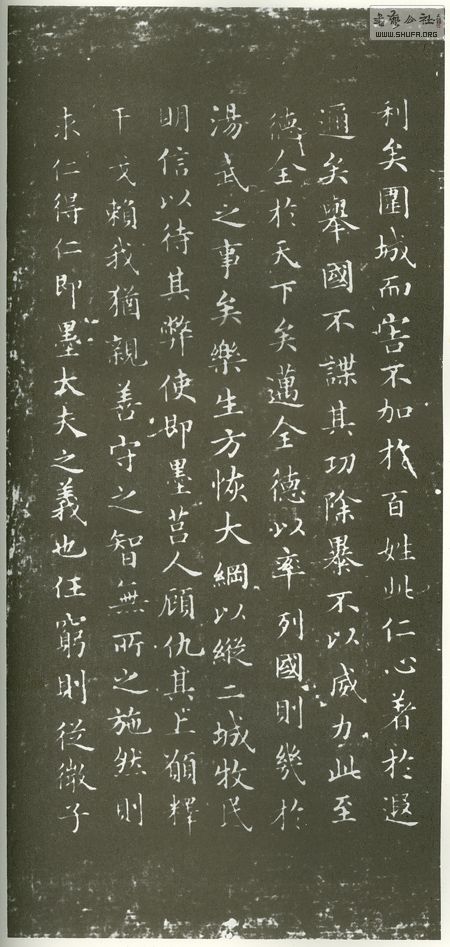 利矣圍城而害不加於百姓此仁心著於遐
邇矣舉國不謀其功除暴不以威力此至
德全於天下矣邁全德以率列國則幾於
湯武之事矣樂生方恢大綱以縱二城牧民
明信以待其弊使即墨莒人顧仇其上願釋
干戈賴我猶親善守之智無所之施然則
求仁得仁即墨大夫之義也任窮則從微子
書藝公社
WWW.SHUFA.ORG